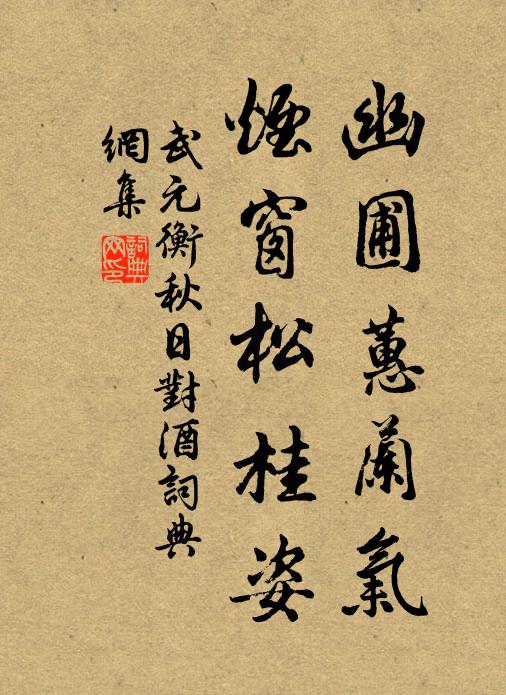 幽圃蕙蘭氣
煙窗松桂姿
武元衡秋日對酒詞典
網集
詞典
网印